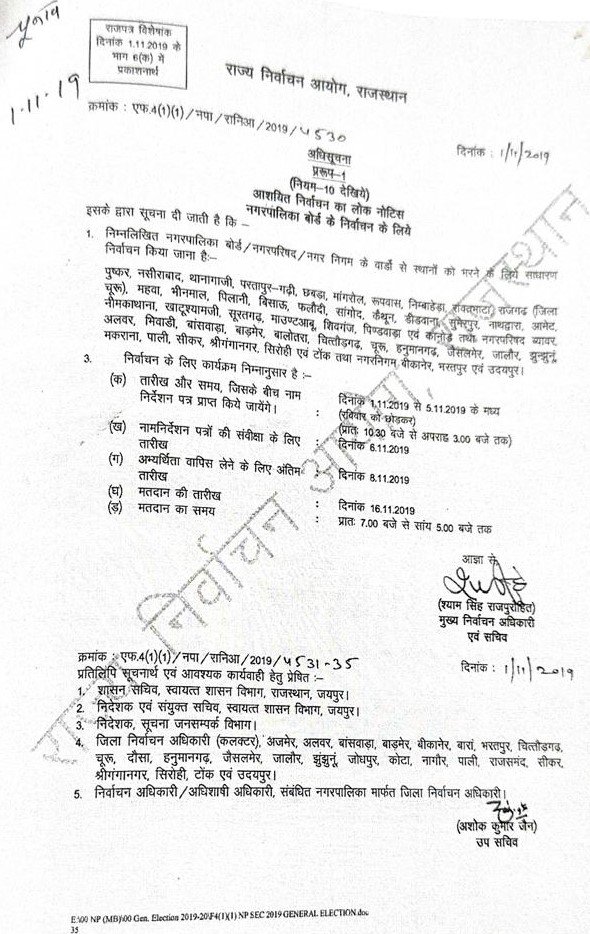 चुनाव
1-11-19
राजपत्र विशेषांक
दिनांक 1.11.2019 के
भाग 6(क) में
प्रकाशनार्थ
राज्य निर्वाचन आयोग, राजस्थान
क्रमांक : एफ.4(1)(1)/नपा/रानिआ/2019/4530
दिनांक: 1/11/2019
अधिसूचना
प्ररूप-1
(नियम-10 देखिये)
आशयित निर्वाचन का लोक नोटिस
नगरपालिका बोर्ड के निर्वाचन के लिये
इसके द्वारा सूचना दी जाती है कि –
1. निम्नलिखित नगरपालिका बोर्ड/नगरपरिषद/नगर निगम के वार्डो से स्थानों को भरने के लिये साधारण
निर्वाचन किया जाना है:–
पुष्कर, नसीराबाद, थानागाजी, परतापुर-गढ़ी, छबड़ा, मांगरोल, रूपवास, निम्बाहेड़ा, रावतभाटा, राजगढ (जिला
चूरू), महवा, भीनमाल, पिलानी, बिसाऊ, फलौदी, सांगोद, कैथून, डीडवाना, सुमेरपुर, नाथद्वारा, आमेट,
नीमकाथाना, खाटूश्यामजी, सूरतगढ, माउण्टआबू, शिवगंज, पिण्डवाड़ा एवं कानोड़ तथा नगरपरिषद ब्यावर,
अलवर, भिवाडी, बांसवाड़ा, बाड़मेर, बालोतरा, चित्तौडगढ, चूरू, हनुमानगढ, जैसलमेर, जालौर, झुन्झुनूं
मकराना, पाली, सीकर, श्रीगंगानगर, सिरोही एवं टोंक तथा नगरनिगम बीकानेर, भरतपुर एवं उदयपुर।
3. निर्वाचन के लिए कार्यक्रम निम्नानुसार है :–
(क) तारीख और समय, जिसके बीच नाम : दिनांक 1.11.2019 से 5.11.2019 के मध्य
निर्देशन पत्र प्राप्त किये जायेंगे। (रविवार को छोड़कर)
(प्रातः 10.30 बजे से अपराह 3.00 बजे तक)
(ख) नामनिर्देशन पत्रों की संवीक्षा के लिए : दिनांक 6.11.2019
तारीख
(ग) अभ्यर्थिता वापिस लेने के लिए अंतिम : दिनांक 8.11.2019
तारीख
(घ) मतदान की तारीख : दिनांक 16.11.2019
(ड़) मतदान का समय : प्रातः 7.00 बजे से सांय 5.00 बजे तक
आज्ञा से
(श्याम सिंह राजपुरोहित)
मुख्य निर्वाचन अधिकारी
एवं सचिव
क्रमांक : एफ.4(1)(1)/नपा/रानिआ/2019/4531-35
दिनांक : 1/11/2019
प्रतिलिपि सूचनार्थ एवं आवश्यक कार्यवाही हेतु प्रेषित :–
1. शासन सचिव, स्वायत्त शासन विभाग, राजस्थान, जयपुर।
2. निदेशक एवं संयुक्त सचिव, स्वायत्त शासन विभाग, जयपुर।
3. निदेशक, सूचना जनसम्पर्क विभाग।
4. जिला निर्वाचन अधिकारी (कलक्टर), अजमेर, अलवर, बांसवाड़ा, बाड़मेर, बीकानेर, बारां, भरतपुर, चित्तौड़गढ,
चूरू, दौसा, हनुमानगढ, जैसलमेर, जालौर, झुंझुनूं, जोधपुर, कोटा, नागौर, पाली, राजसमंद, सीकर,
श्रीगंगानगर, सिरोही, टोंक एवं उदयपुर।
5. निर्वाचन अधिकारी/अधिशाषी अधिकारी, संबंधित नगरपालिका मार्फत जिला निर्वाचन अधिकारी।
(अशोक कुमार जैन)
उप सचिव
राज्य निर्वाचन आयोग, राजस्थान
E:\00 NP (MB)\00 Gen. Election 2019-20\F4(1)(1) NP SEC 2019 GENERAL ELECTION.doc
35